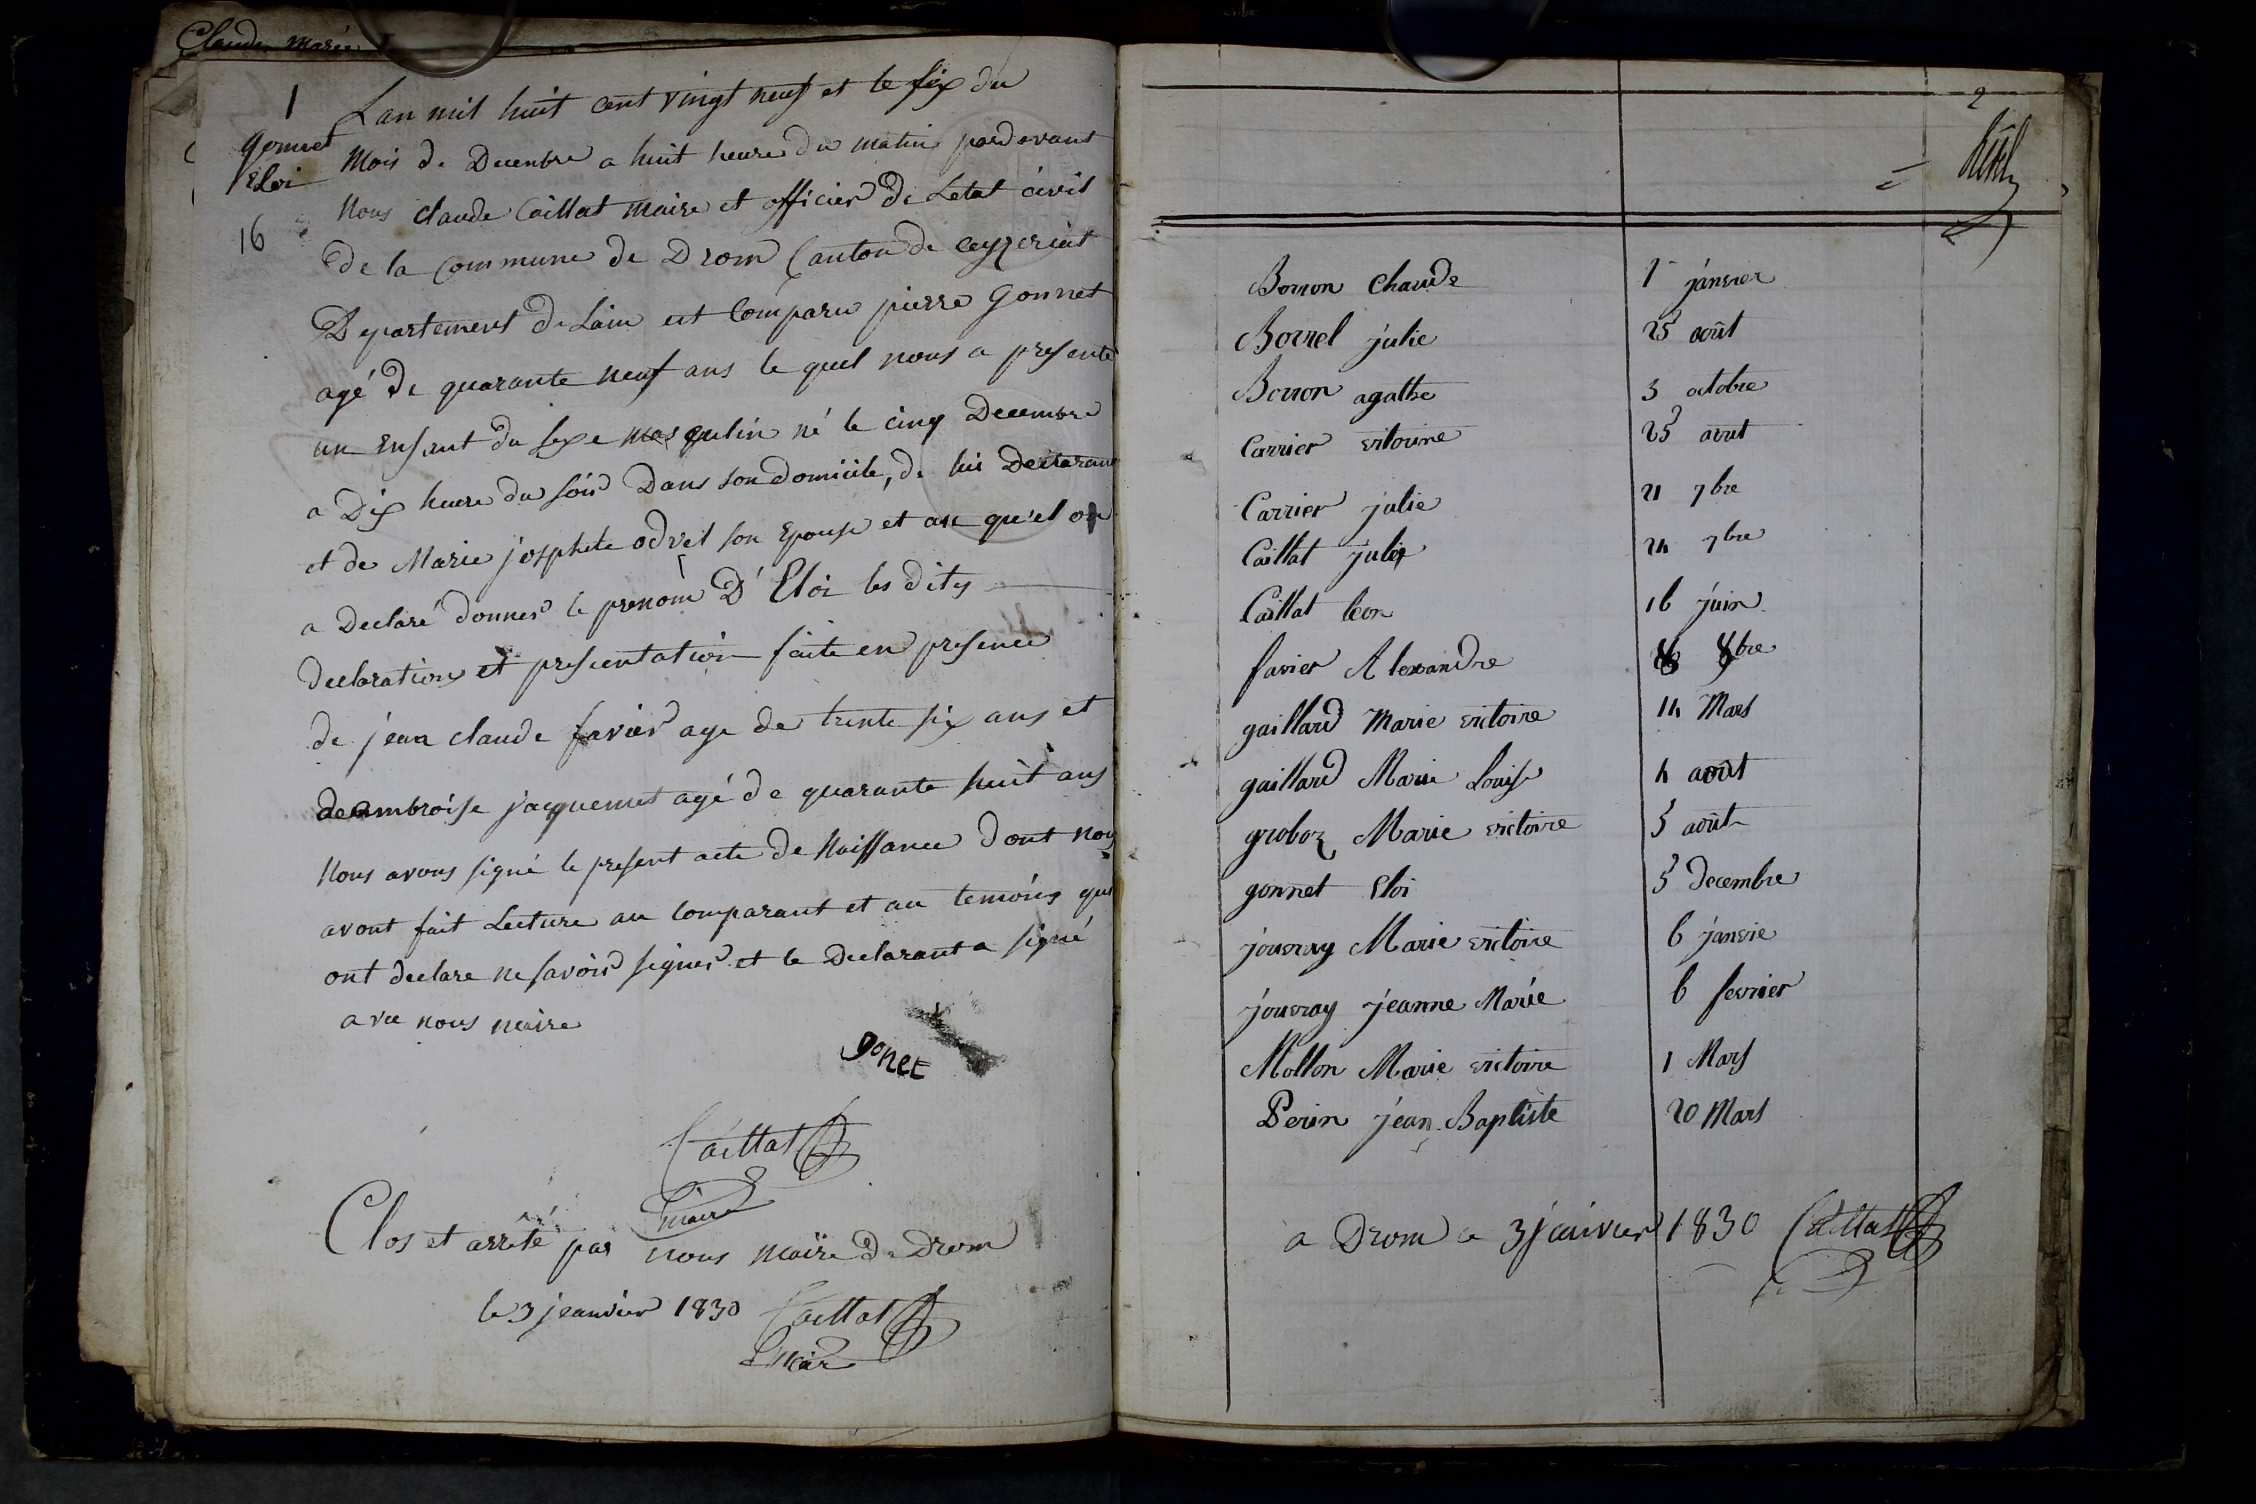 Claude Marie
1
gonnet
Eloi
16
Lan mil huit cent vingt neuf et le six du
Mois de Decembre a huit heure du matin pardevant
Nous claude Caillat maire et officier de Letat civil
de la Commune de Drom Canton de ceyzeriat
Departement de Lain est Comparu pierre gonnet
agé de quarante neuf ans le quel nous a presenté
un Enfant du sexe masqulin né le cinq Decembre
a Dix heure du soir Dans son domicile, de lui Declarant
et de Marie josphete odvet son Epouse et au qu'el on
a Declaré donner le prenom D'Eloi les dites
declarations et presentation faite en presence
de jean claude favier age de trente six ans et
de ambroise jacquemet agé de quarante huit ans
Nous avons signé le present acte de Naissance dont nous
avont fait Lecture au Comparant et au temoins qui
ont declare ne savoir signer et le Declarant a signé
avec nous maire
gonet
Caillat
maire
Clos et arrêté par nous maire de Drom
le 3 jeanvier 1830 Caillat
maire
2
Borron Claude 1 janvier
Borrel julie 25 août
Borron agathe 5 octobre
Carrier victoirne 25 avut
Carrier julie 21 7bre
Caillat julie 24 7bre
Caillat leon 16 juin
favier Alexandre 8bre
gaillard Marie victoire 14 Mars
gaillard Marie Louise 4 août
groboz Marie victoire 5 août
gonnet Eloi 5 decembre
jouvray Marie victoire 6 janvie
jouvray jeanne Marie 6 fevrier
Mollon Marie victoire 1 Mars
Perin jean Baptiste 20 Mars
a Drom ce 3 janvier 1830 Caillat